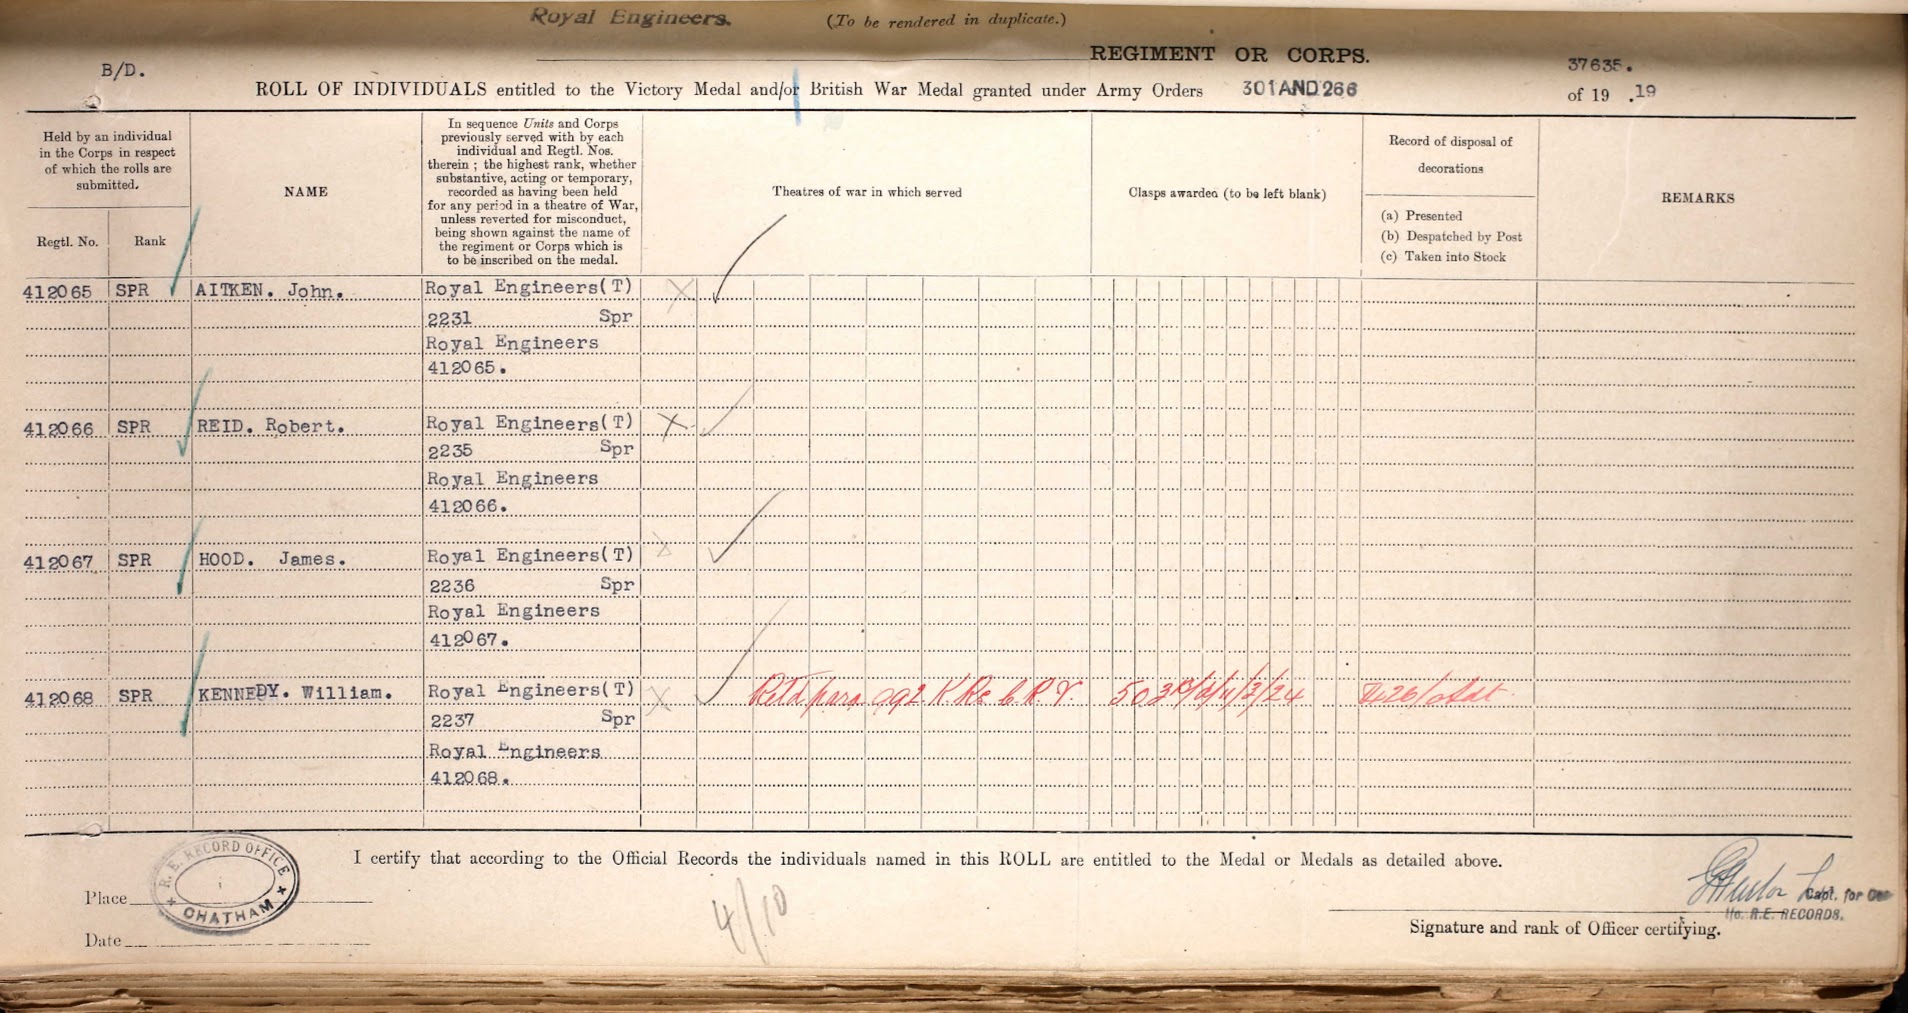 Royal Engineers. (To be rendered in duplicate.)
REGIMENT OR CORPS.
B/D.
37635.
ROLL OF INDIVIDUALS entitled to the Victory Medal and/or British War Medal granted under Army Orders 301AND266 of 19 .19
Held by an individual
in the Corps in respect
of which the rolls are
submitted.
Regtl. No.
Rank
NAME
In sequence Units and Corps
previously served with by each
individual and Regtl. Nos.
therein ; the highest rank, whether
substantive, acting or temporary,
recorded as having been held
for any period in a theatre of War,
unless reverted for misconduct,
being shown against the name of
the regiment or Corps which is
to be inscribed on the medal.
Theatres of war in which served
Clasps awarded (to be left blank)
Record of disposal of
decorations
(a) Presented
(b) Despatched by Post
(c) Taken into Stock
REMARKS
412065 SPR AITKEN. John. Royal Engineers(T)
2231 Spr
Royal Engineers
412065.
412066 SPR REID. Robert. Royal Engineers(T)
2235 Spr
Royal Engineers
412066.
412067 SPR HOOD. James. Royal Engineers(T)
2236 Spr
Royal Engineers
412067.
412068 SPR KENNEDY. William. Royal Engineers(T) Retd para 992 K
2237 Spr
Royal Engineers
412068.
R. E. RECORD OFFICE
CHATHAM
I certify that according to the Official Records the individuals named in this ROLL are entitled to the Medal or Medals as detailed above.
Place
Date
4/10
Capt. for
R.E. RECORDS.
Signature and rank of Officer certifying.